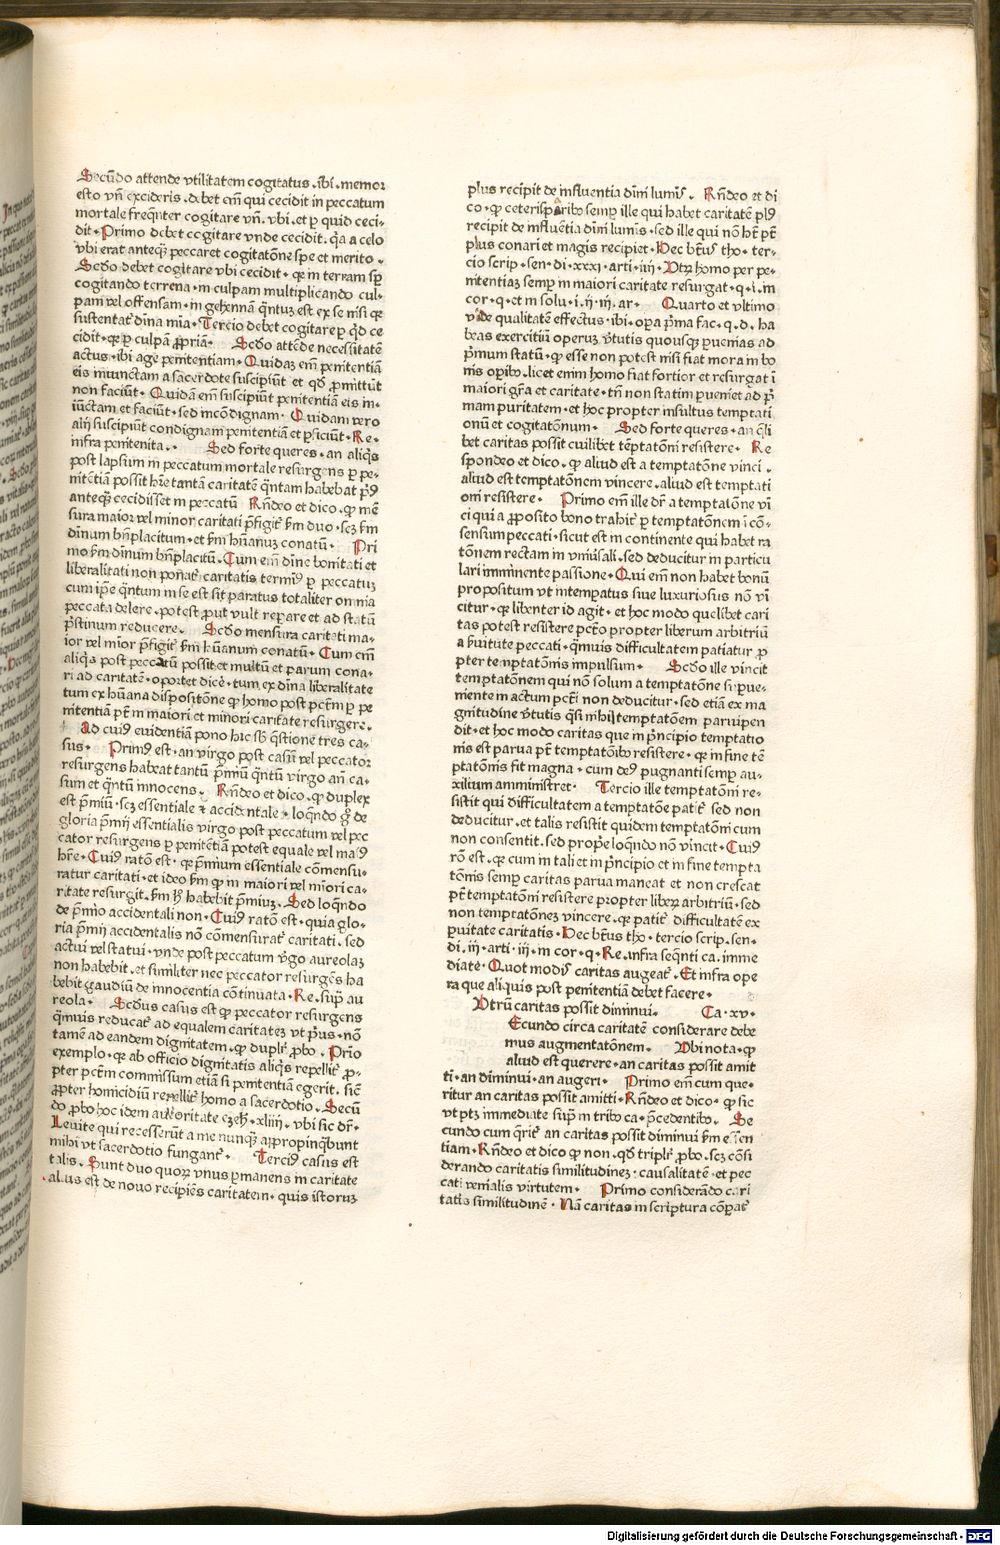 Secūdo attende vtilitatem cogitatus . ibi . memor
esto vn̄ excideris . debet em̄ qui cecidit in peccatum
mortale freqn̄ter cogitare vn̄ . vbi . et p quid ceci-
dit . Primo debet cogitare vnde cecidit . q̄a a celo
vbi erat anteq̄ peccaret cogitatōne spe et merito .
Scd̄o debet cogitare vbi cecidit . qe in terram sp̄
cogitando terrena . in culpam multiplicando cul-
pam vel offensam . in gehennā q̄ntuz est ex se nisi qe
sustentat᷑ diīna mīa . Tercio debet cogitare p qd̄ ce
cidit . qe p culpā ꝓpriā . Scd̄o attēde necessitatē
actus . ibi age penitentiam . Quidaz em̄ penitentiā
eis iniunctam a sacerdote suscipiūt et qd̄ ꝓmittūt
non faciūt . Quidā em̄ suscipiūt penitentiā eis in-
iūctam et faciūt . sed incōdignam . Quidam vero
alij suscipiūt condignam penitentiā et pficiūt . Re .
infra penitenita . . Sed forte queres . an aliqs
post lapsum in peccatum mortale resurgens p pe-
nitētiā possit hr̄e tantā caritatē q̄ntam habebat pꝰ
anteq̄ cecidisset in peccatū Rn̄deo et dico . ꝙ mē
sura maior vel minor caritati p̄figit᷑ fm̄ duo . scz fm̄
diīnum bn̄placitum . et fm̄ hūanuz conatū . Pri
mo fm̄ diīnum bn̄placitū . Cum em̄ diīne bonitati et
liberalitati non ponat᷑ caritatis terminꝰ p peccatuz
cum ip̄e q̄ntum in se est sit paratus totaliter omnia
peccata delere . potest ꝓut vult reparare et ad statū
p̄stinum reducere . Scd̄o mensura caritati ma-
ior vel mīor p̄figit᷑ fm̄ hūanum conatū . Cum em̄
aliqs post peccatū possit et multū et parum cona-
ri ad caritatē . oportet dicē . tum ex diīna liberalitate
tum ex hūana dispositōne ꝙ homo post pctm̄ p pe
nitentiā pt̄ in maiori et minori caritate resurgere .
Ad cuiꝰ euidentiā pono hic sb̄ q̄stione tres ca-
sus . Primꝰ est . an virgo post casū vel peccator
resurgens habeat tantū p̄miū q̄ntū virgo an̄ ca-
sum et q̄ntū innocens . Rn̄deo et dico . ꝙ duplex
est p̄miū . scz essentiale ⁊ accidentale . loqn̄do gͦ de
gloria p̄mij essentialis virgo post peccatum vel pec
cator resurgens p penitētiā potest equale vel maiꝰ
hr̄e . Cuiꝰ ratō est . qe p̄mium essentiale cōmensu-
ratur caritati . et ideo fm̄ ꝙ in maiori vel mīori ca-
ritate resurgit . fm̄ hͦ habebit p̄miuz . Sed loqn̄do
de p̄mio accidentali non . Cuiꝰ ratō est . quia glo-
ria p̄mij accidentalis nō cōmensurat᷑ caritati . sed
actui vel statui . vnde post peccatum v̄go aureolaz
non habebit . et similiter nec peccator resurgēs ha
bebit gaudiū de innocentia cōtinuata . Re . sup̄ au
reola . Scd̄us casus est ꝙ peccator resurgens
q̄muis reducat᷑ ad equalem caritatez vt pꝰus . nō
tamē ad eandem dignitatem . ꝙ dupl̄r ꝓbo . Prīo
exemplo . qe ab officio dignitatis aliqs repellit᷑ ꝓ-
pter pctm̄ commissum etiā si penitentiā egerit . sicē
ꝓpter homicidiū repellit᷑ homo a sacerdotio . Secū
do ꝓbo hoc idem auctoritate ezech̄ . xliiij . vbi sic dr̄ .
Leuite qui recesserūt a me nunq̄ appropinq̄bunt
mihi vt sacerdotio fungant᷑ . Terciꝰ casus est
talis . Sunt duo quoꝝ vnus pmanens in caritate
alius est de nouo recipiēs caritatem . quis istoruz
plus recipit de influentia diīni luminꝭ . Rn̄deo et di
co . ꝙ ceteris paribo semp ille qui habet caritatē plꝰ
recipit de influētia diīni lumīs . sed ille qui nō hēt pt̄
plus conari et magis recipiet . Hec btūs tho . ter-
cio scrip . sen . di . xxxi . arti . iiij . Vtꝝ homo per pe-
nitentiaz semp in maiori caritate resurgat . q . i . in
cor . q . et in solu . i . ij . iij . ar . Quarto et vltimo
vide qualitatē effectus . ibi . opa p̄ma fac . q . d . ha
beas exercitiū operuz v̄tutis quousqꝫ puenias ad
p̄mum statū . ꝙ esse non potest nisi fiat mora in bo
nis opibo . licet enim homo fiat fortior et resurgat ī
maiori gr̄a et caritate . tn̄ non statim pueniet ad p̄
mam puritatem . et hoc propter insultus temptati
onū et cogitatōnum . Sed forte queres . an q̄li
bet caritas possit cuilibet tēptatōni resistere . Re
spondeo et dico . ꝙ aliud est a temptatōne vinci .
aliud est temptatōnem vincere . aliud est temptati
oni resistere . Primo em̄ ille dr̄ a temptatōne vī
ci qui a ꝓposito bono trahit᷑ p temptatōnem ī cō-
sensum peccati . sicut est in continente qui habet ra
tōnem rectam in vniuersali . sed deducitur in particu
lari imminente passione . Qui em̄ non habet bonū
propositum vt intempatus siue luxuriosus nō vī
citur . qe libenter id agit . et hoc modo quelibet cari
tas potest resistere pctō propter liberum arbitriū
a seruitute peccati . q̄muis difficultatem patiatur ꝓ
pter temptatōnis impulsum . Scd̄o ille vincit
temptatōnem qui nō solum a temptatōne supue-
niente in actum pctī non deducitur . sed etiā ex ma
gnitudine v̄tutis q̄si nihil temptatōem paruipen
dit . et hoc modo caritas que in p̄ncipio temptatio
nis est parua pt̄ temptatōibo resistere . qe in fine tē
ptatōnis fit magna . cum deꝰ pugnanti semp au-
xilium amministret . Tercio ille temptatōni re-
sistit qui difficultatem a temptatōe patit᷑ sed non
deducitur . et talis resistit quidem temptatōni cum
non consentit . sed prop̄e loqn̄do nō vincit . Cuiꝰ
rō est . qe cum in tali et in p̄ncipio et in fine tempta
tōnis semp caritas parua maneat et non crescat
pt̄ temptatōni resistere propter liberꝝ arbitriū . sed
non temptatōnez vincere . qe patit᷑ difficultatē ex
puitate caritatis . Hec btūs tho . tercio scrip . sen .
di . iij . arti . iij . in cor . q . Re . infra seqn̄ti ca . imme
diate . Quot modꝭ caritas augeat᷑ . Et infra ope
ra que aliquis post penitentiā debet facere .
Vtrū caritas possit diminui . Ca . xv .
Ecundo circa caritatē considerare debe
mus augmentatōnem . Vbi nota . ꝙ
aliud est querere . an caritas possit amit
ti . an diminui . an augeri . Primo em̄ cum que-
ritur an caritas possit amitti . Rn̄deo et dico . ꝙ sic
vt ptꝫ immediate sup̄ in tribo ca . p̄cedentibo . Se
cundo cum q̄rit᷑ an caritas possit diminui fm̄ essen
tiam . Rn̄deo et dico ꝙ non . qd̄ tripl̄r ꝓbo . scz cōsi
derando caritatis similitudinez . causalitatē . et pec
cati venialis virtutem . Primo considerādo cari
tatis similitudinē . Nā caritas in scriptura cōpat᷑
Digitalisierung gefördert durch die Deutsche Forschungsgemeinschaft - DFG